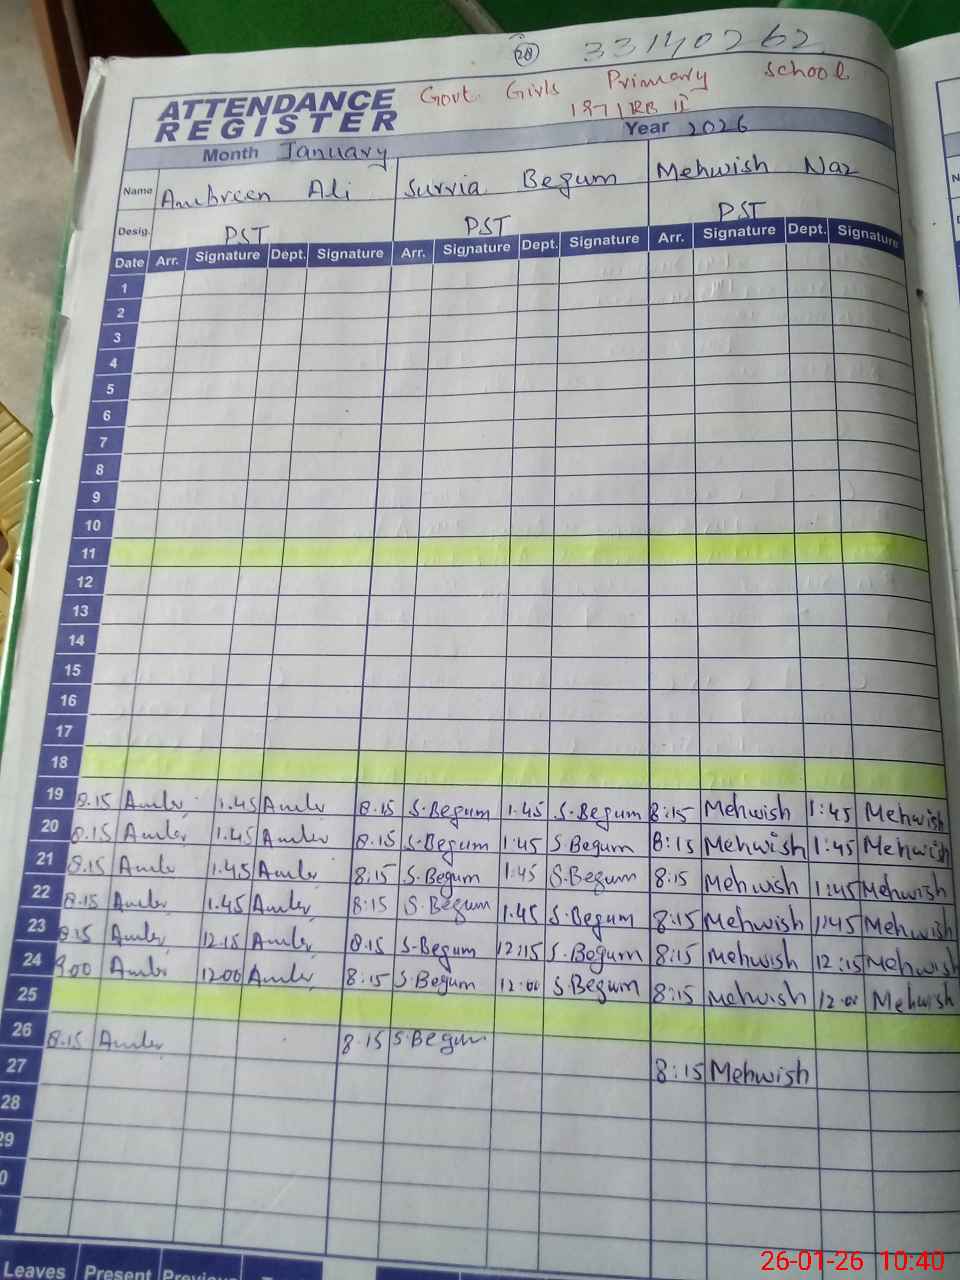 28 33140262
Govt. Girls Primary School
197/RB II
ATTENDANCE
REGISTER
Month January Year 2026
Name Ambreen Ali Surria Begum Mehwish Naz
Desig. PST PST PST
Date Arr. Signature Dept. Signature Arr. Signature Dept. Signature Arr. Signature Dept. Signature
1
2
3
4
5
6
7
8
9
10
11
12
13
14
15
16
17
18
19 8.15 Amber 1.45 Amber 8.15 S.Begum 1.45 S.Begum 8:15 Mehwish 1:45 Mehwish
20 8.15 Amber 1.45 Amber 8.15 S.Begum 1:45 S.Begum 8:15 Mehwish 1:45 Mehwish
21 8.15 Amber 1.45 Amber 8:15 S.Begum 1:45 S.Begum 8:15 Mehwish 1:45 Mehwish
22 8.15 Amber 1.45 Amber 8:15 S.Begum 1.45 S.Begum 8:15 Mehwish 1:45 Mehwish
23 8.15 Amber 12.15 Amber 8.15 S.Begum 12:15 S.Begum 8:15 Mehwish 12:15 Mehwish
24 9.00 Amber 12.00 Amber 8.15 S.Begum 12:00 S.Begum 8:15 Mehwish 12:00 Mehwish
25
26 8.15 Amber 8.15 S.Begum
27 8:15 Mehwish
28
29
0
Leaves Present Previous
26-01-26 10:40